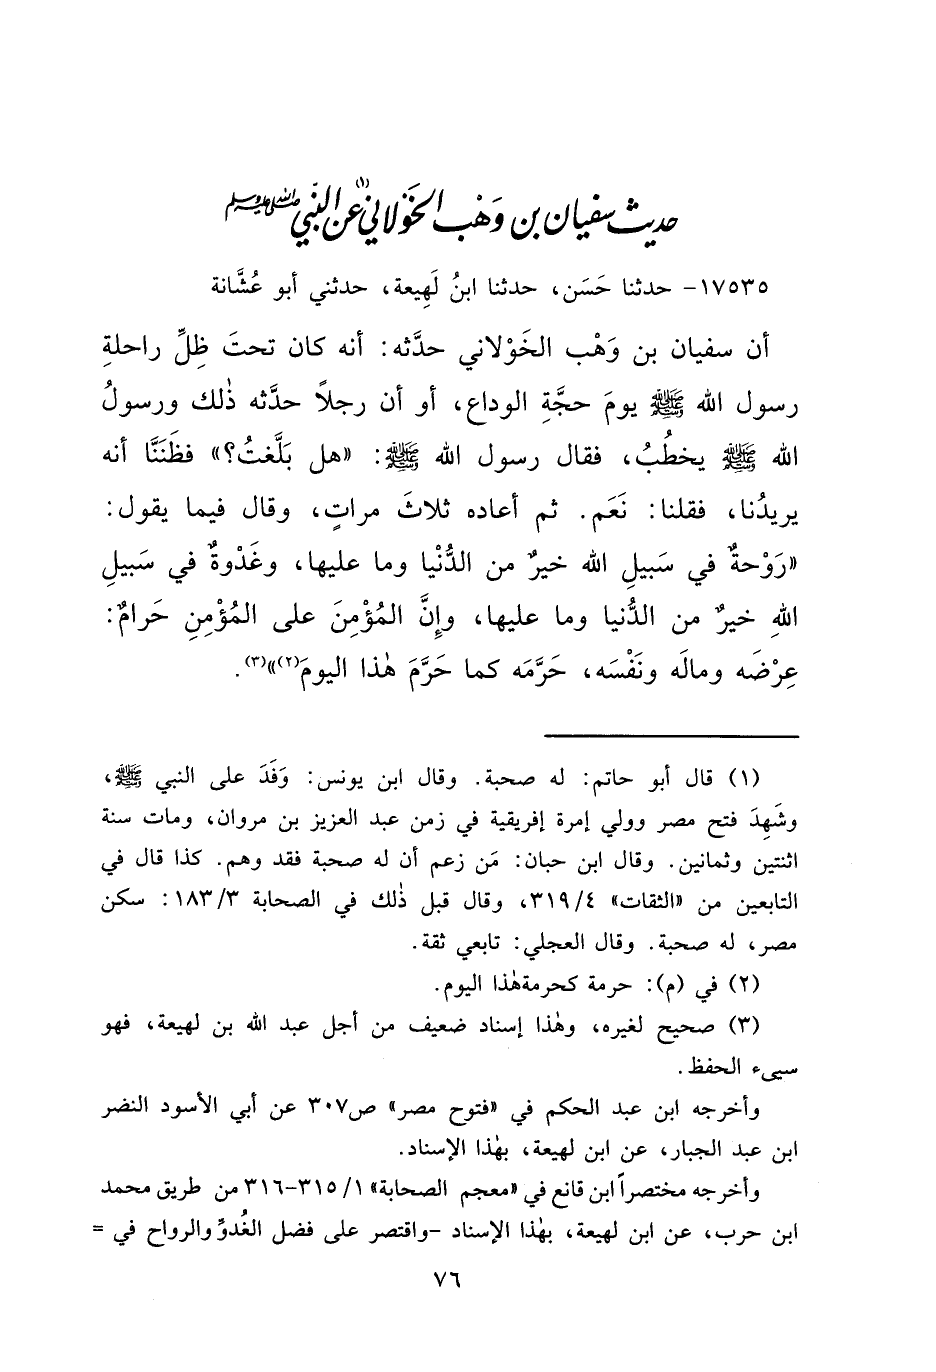 حديث سفيان بن وَهْب الخَوْلاني(١) عن النبي ﷺ
١٧٥٣٥- حدثنا حَسَن، حدثنا ابنُ لَهِيعة، حدثني أبو عُشَّانة
أن سفيان بن وَهْب الخَوْلاني حدَّثه: أنه كان تحتَ ظِلِّ راحلةِ
رسول الله ﷺ يومَ حجَّةِ الوداع، أو أن رجلاً حدَّثه ذٰلك ورسولُ
الله ﷺ يخطُبُ، فقال رسول الله ﷺ: «هل بَلَّغتُ؟» فظَنَنَّا أنه
يريدُنا، فقلنا: نَعَم. ثم أعاده ثلاثَ مراتٍ، وقال فيما يقول:
«رَوْحةٌ في سَبيلِ الله خيرٌ من الدُّنْيا وما عليها، وغَدْوةٌ في سَبيلِ
اللهِ خيرٌ من الدُّنيا وما عليها، وإِنَّ المُؤْمِنَ على المُؤْمِنِ حَرامٌ:
عِرْضَه ومالَه ونَفْسَه، حَرَّمَه كما حَرَّمَ هٰذا اليومَ(٢)»(٣).
(١) قال أبو حاتم: له صحبة. وقال ابن يونس: وَفَدَ على النبي ﷺ،
وشَهِدَ فتح مصر وولي إمرة إفريقية في زمن عبد العزيز بن مروان، ومات سنة
اثنتين وثمانين. وقال ابن حبان: مَن زعم أن له صحبة فقد وهم. كذا قال في
التابعين من «الثقات» ٣١٩/٤، وقال قبل ذٰلك في الصحابة ١٨٣/٣: سكن
مصر، له صحبة. وقال العجلي: تابعي ثقة.
(٢) في (م): حرمة كحرمةهٰذا اليوم.
(٣) صحيح لغيره، وهٰذا إسناد ضعيف من أجل عبد الله بن لهيعة، فهو
سيىء الحفظ.
وأخرجه ابن عبد الحكم في «فتوح مصر» ص٣٠٧ عن أبي الأسود النضر
ابن عبد الجبار، عن ابن لهيعة، بهٰذا الإسناد.
وأخرجه مختصراً ابن قانع في «معجم الصحابة» ١/ ٣١٥-٣١٦ من طريق محمد
ابن حرب، عن ابن لهيعة، بهٰذا الإسناد -واقتصر على فضل الغُدوِّ والرواح في =
٧٦